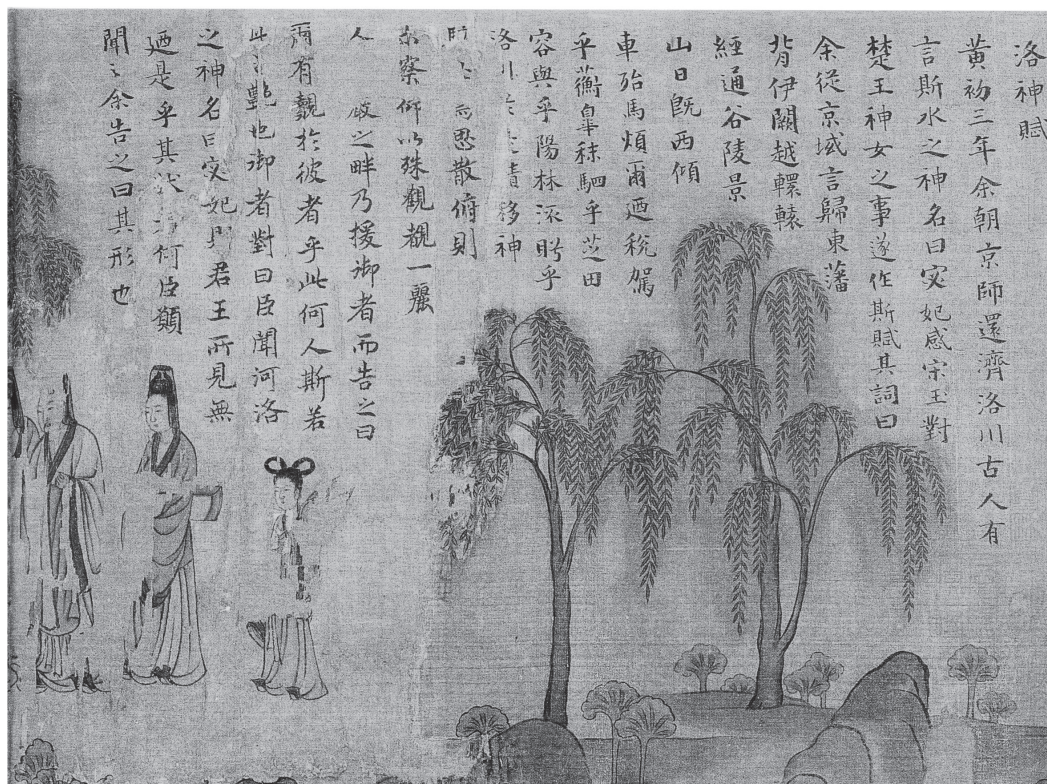 洛神賦
黃初三年余朝京師還濟洛川古人有
言斯水之神名曰宓妃感宋玉對
楚王神女之事遂作斯賦其詞曰
余從京域言歸東藩
背伊闕越轘轅
經通谷陵景
山日旣西傾
車殆馬煩爾迺稅駕
乎蘅臯秣駟乎芝田
容與乎陽林流眄乎
洛川於 精移神
忽散俯則
未察仰以殊觀覩一麗
人 巖之畔乃援御者而告之曰
爾有覿於彼者乎此何人斯若
此之艷也御者對曰臣聞河洛
之神名曰宓妃則君王所見無
迺是乎其狀若何臣願
聞之余告之曰其形也